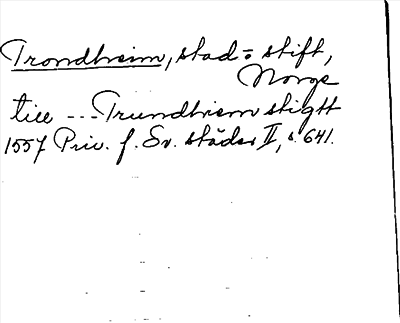 Trondheim, stad o stift,
Norge
till --- Trundhiem stigtt
1557 Priv. f. Sv. städer II, s. 641.